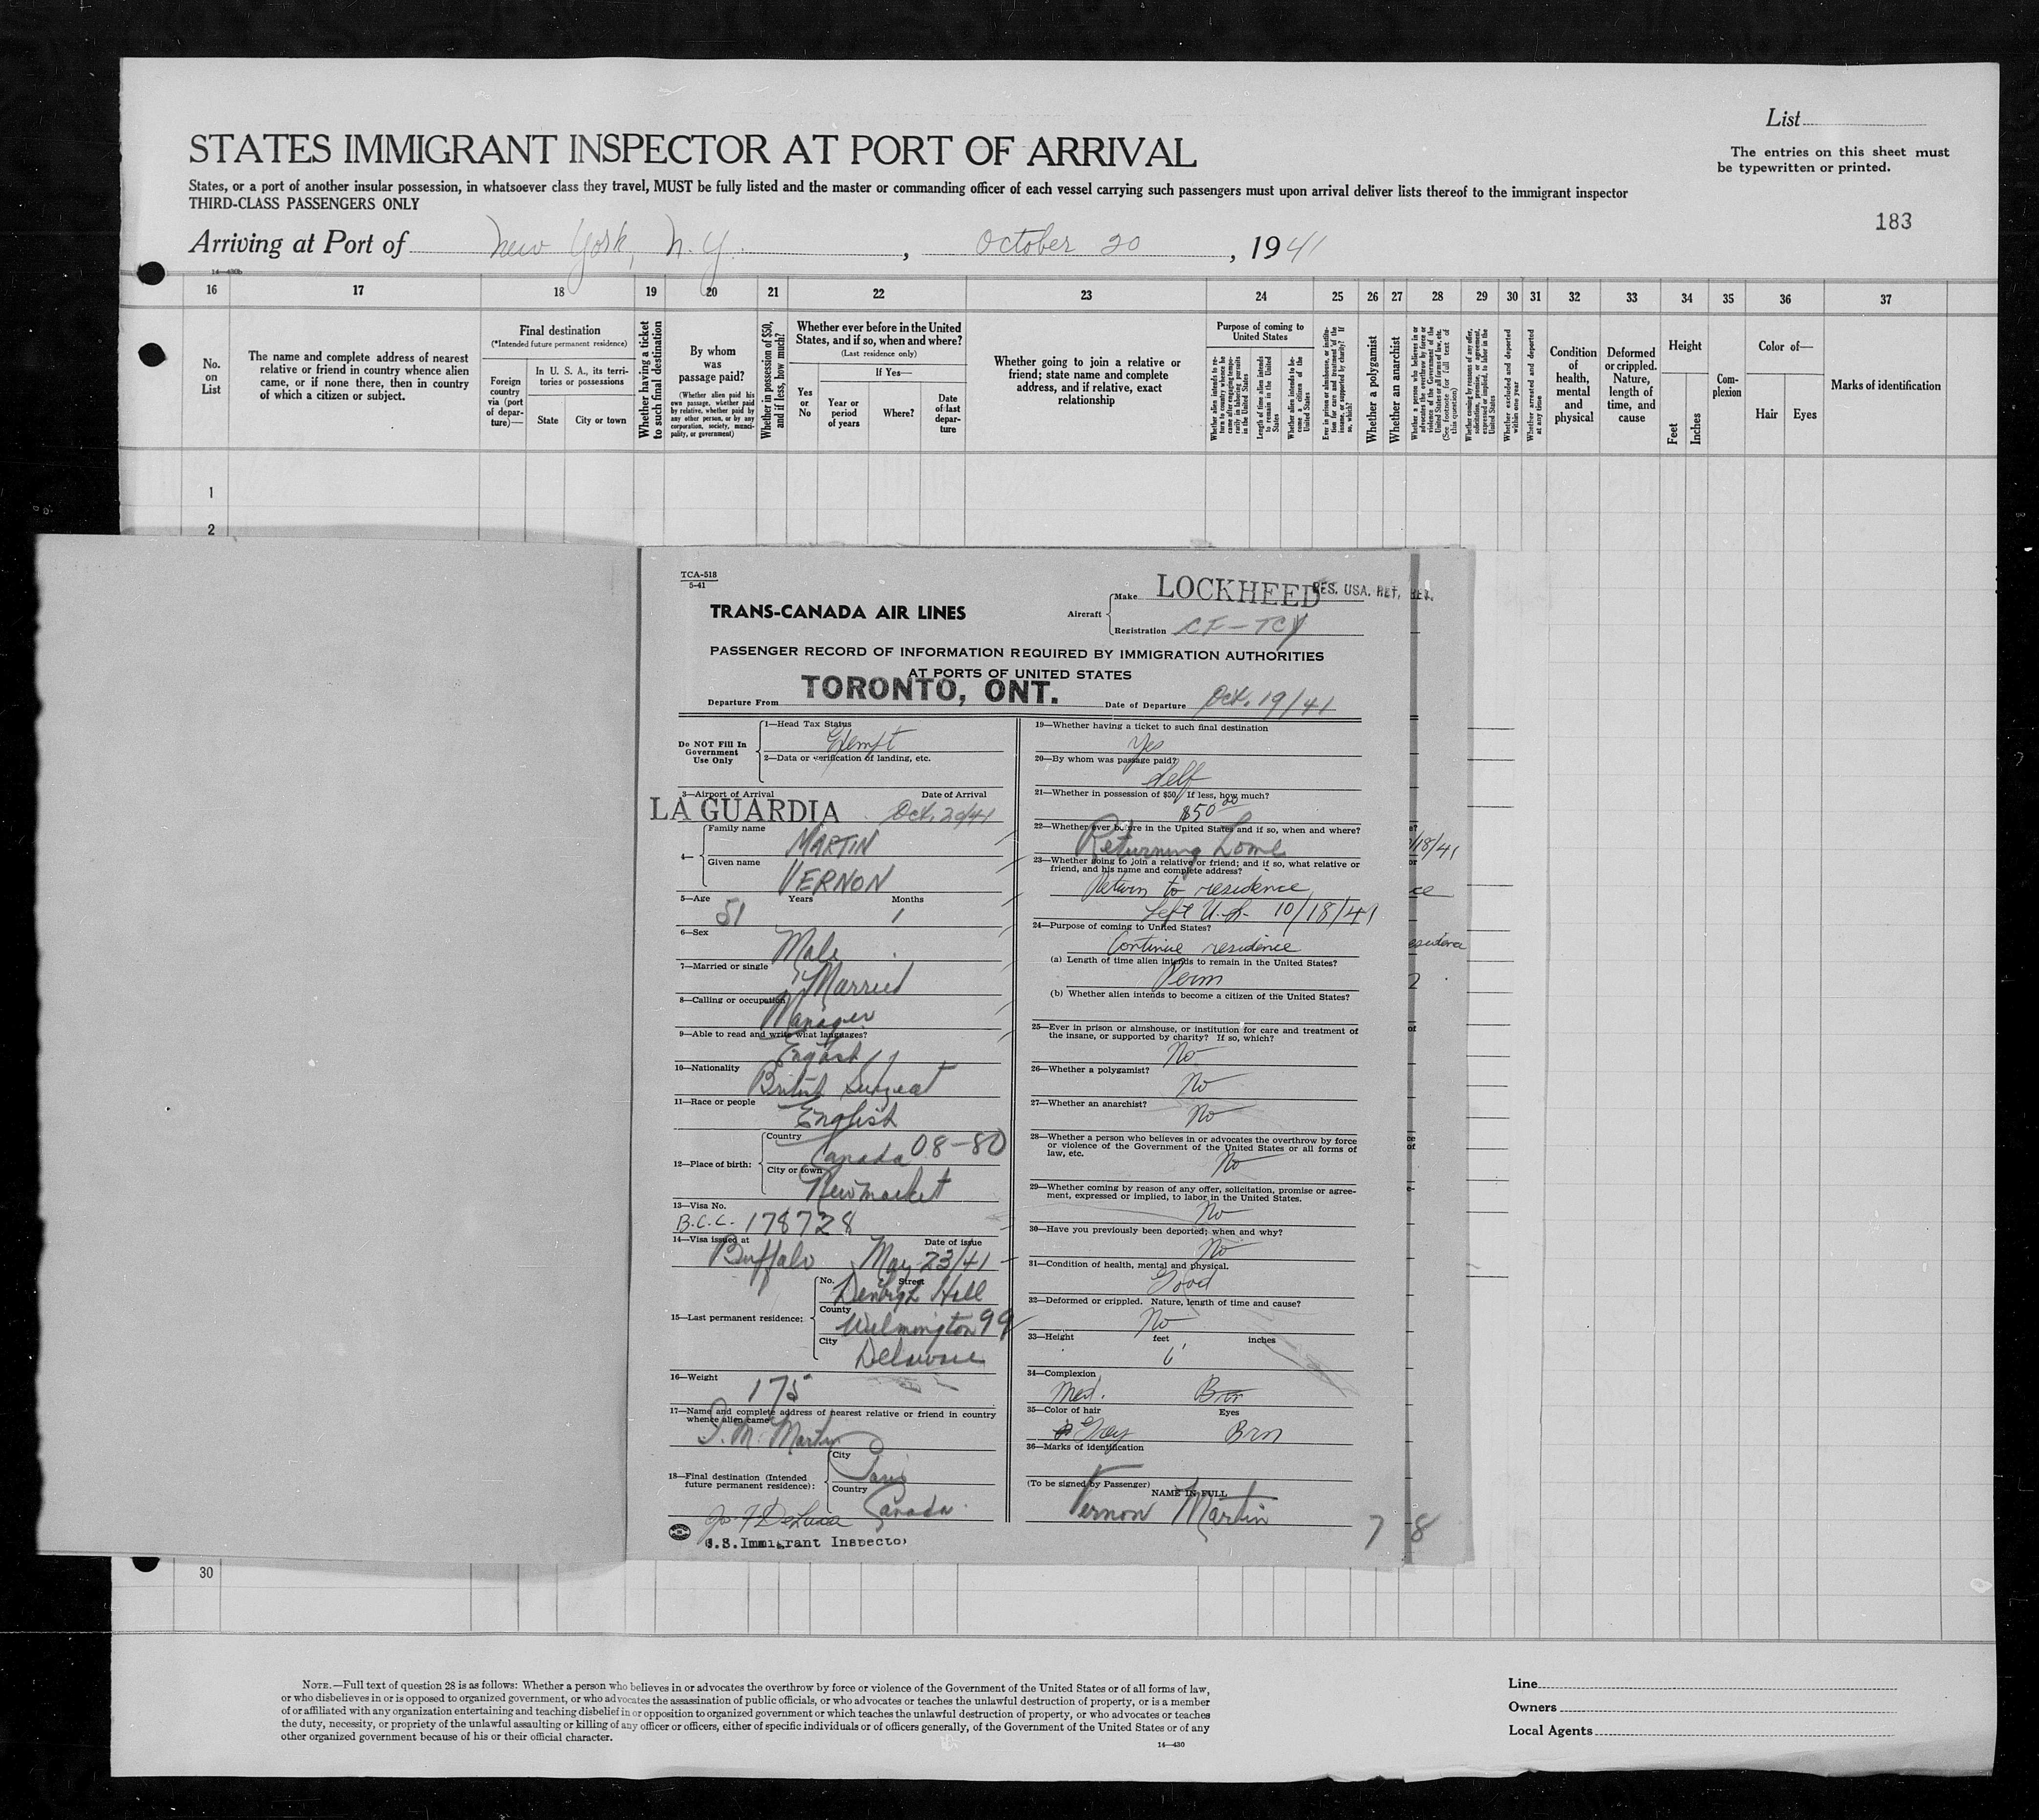 List
STATES IMMIGRANT INSPECTOR AT PORT OF ARRIVAL
The entries on this sheet must
be typewritten or printed.
States, or a port of another insular possession, in whatsoever class they travel, MUST be fully listed and the master or commanding officer of each vessel carrying such passengers must upon arrival deliver lists thereof to the immigrant inspector
THIRD-CLASS PASSENGERS ONLY
183
Arriving at Port of New York, N.Y., October 20, 1941
14—430b
16 17 18 19 20 21 22 23 24 25 26 27 28 29 30 31 32 33 34 35 36 37
No.
on
List
The name and complete address of nearest
relative or friend in country whence alien
came, or if none there, then in country
of which a citizen or subject.
Final destination
(*Intended future permanent residence)
Foreign
country
via (port
of depar-
ture)—
In U. S. A., its terri-
tories or possessions
State
City or town
Whether having a ticket
to such final destination
By whom
was
passage paid?
(Whether alien paid his
own passage, whether paid
by relative, whether paid by
any other person, or by any
corporation, society, munici-
pality, or government)
Whether in possession of $50,
and if less, how much?
Whether ever before in the United
States, and if so, when and where?
(Last residence only)
Yes
or
No
If Yes—
Year or
period
of years
Where?
Date
of last
depar-
ture
Whether going to join a relative or
friend; state name and complete
address, and if relative, exact
relationship
Purpose of coming to
United States
Whether alien intends to re-
turn to country whence he
came after engaging tempo-
rarily in laboring pursuits
in the United States
Length of time alien intends
to remain in the United
States
Whether alien intends to be-
come a citizen of the
United States
Ever in prison or almshouse, or institu-
tion for care and treatment of the
insane, or supported by charity? If
so, which?
Whether a polygamist
Whether an anarchist
Whether a person who believes in or
advocates the overthrow by force or
violence of the Government of the
United States or all forms of law, etc.
(See footnote for full text of
this question)
Whether coming by reasons of any offer,
solicitation, promise, or agreement,
expressed or implied, to labor in the
United States
Whether excluded and deported
within one year
Whether arrested and deported
at any time
Condition
of
health,
mental
and
physical
Deformed
or crippled.
Nature,
length of
time, and
cause
Height
Feet
Inches
Com-
plexion
Color of—
Hair
Eyes
Marks of identification
1
2
TCA-518
5-41
TRANS-CANADA AIR LINES
Aircraft
Make LOCKHEED
RES. USA. RET.
Registration CF-TCY
PASSENGER RECORD OF INFORMATION REQUIRED BY IMMIGRATION AUTHORITIES
AT PORTS OF UNITED STATES
Departure From TORONTO, ONT. Date of Departure Oct. 19/41
Do NOT Fill In
Government
Use Only
1—Head Tax Status
Exempt
2—Data or verification of landing, etc.
3—Airport of Arrival Date of Arrival
LA GUARDIA Oct. 20/41
4—
Family name
MARTIN
Given name
VERNON
5—Age Years Months
51 1
6—Sex
Male
7—Married or single
Married
8—Calling or occupation
Manager
9—Able to read and write what languages?
English
10—Nationality
British Subject
11—Race or people
English
12—Place of birth:
Country
Canada 08-80
City or town
Newmarket
13—Visa No.
B.C.C. 178728
14—Visa issued at Date of issue
Buffalo May 23/41
15—Last permanent residence:
No. Street
Denbigh Hall
County
Wilmington 99
City
Delaware
16—Weight
175
17—Name and complete address of nearest relative or friend in country
whence alien came
Martin
18—Final destination (Intended
future permanent residence):
City
Paris
Country
Canada
Jos. F. DeLuca
U.S. Immigrant Inspector
19—Whether having a ticket to such final destination
Yes
20—By whom was passage paid?
Self
21—Whether in possession of $50, If less, how much?
$50 00
22—Whether ever before in the United States and if so, when and where?
Returning Home
23—Whether going to join a relative or friend; and if so, what relative or
friend, and his name and complete address?
Return to residence
Left U.S. 10/18/41
24—Purpose of coming to United States?
Continue residence
(a) Length of time alien intends to remain in the United States?
Perm
(b) Whether alien intends to become a citizen of the United States?
25—Ever in prison or almshouse, or institution for care and treatment of
the insane, or supported by charity? If so, which?
No
26—Whether a polygamist?
No
27—Whether an anarchist?
No
28—Whether a person who believes in or advocates the overthrow by force
or violence of the Government of the United States or all forms of
law, etc.
No
29—Whether coming by reason of any offer, solicitation, promise or agree-
ment, expressed or implied, to labor in the United States.
No
30—Have you previously been deported; when and why?
No
31—Condition of health, mental and physical.
Good
32—Deformed or crippled. Nature, length of time and cause?
No
33—Height feet inches
6'
34—Complexion
Med. Brn
35—Color of hair Eyes
Grey Brn
36—Marks of identification
(To be signed by Passenger)
NAME IN FULL
Vernon Martin
7 8
/18/41
ce
esidence
30
NOTE.—Full text of question 28 is as follows: Whether a person who believes in or advocates the overthrow by force or violence of the Government of the United States or of all forms of law,
or who disbelieves in or is opposed to organized government, or who advocates the assassination of public officials, or who advocates or teaches the unlawful destruction of property, or is a member
of or affiliated with any organization entertaining and teaching disbelief in or opposition to organized government or which teaches the unlawful destruction of property, or who advocates or teaches
the duty, necessity, or propriety of the unlawful assaulting or killing of any officer or officers, either of specific individuals or of officers generally, of the Government of the United States or of any
other organized government because of his or their official character.
14—430
Line
Owners
Local Agents